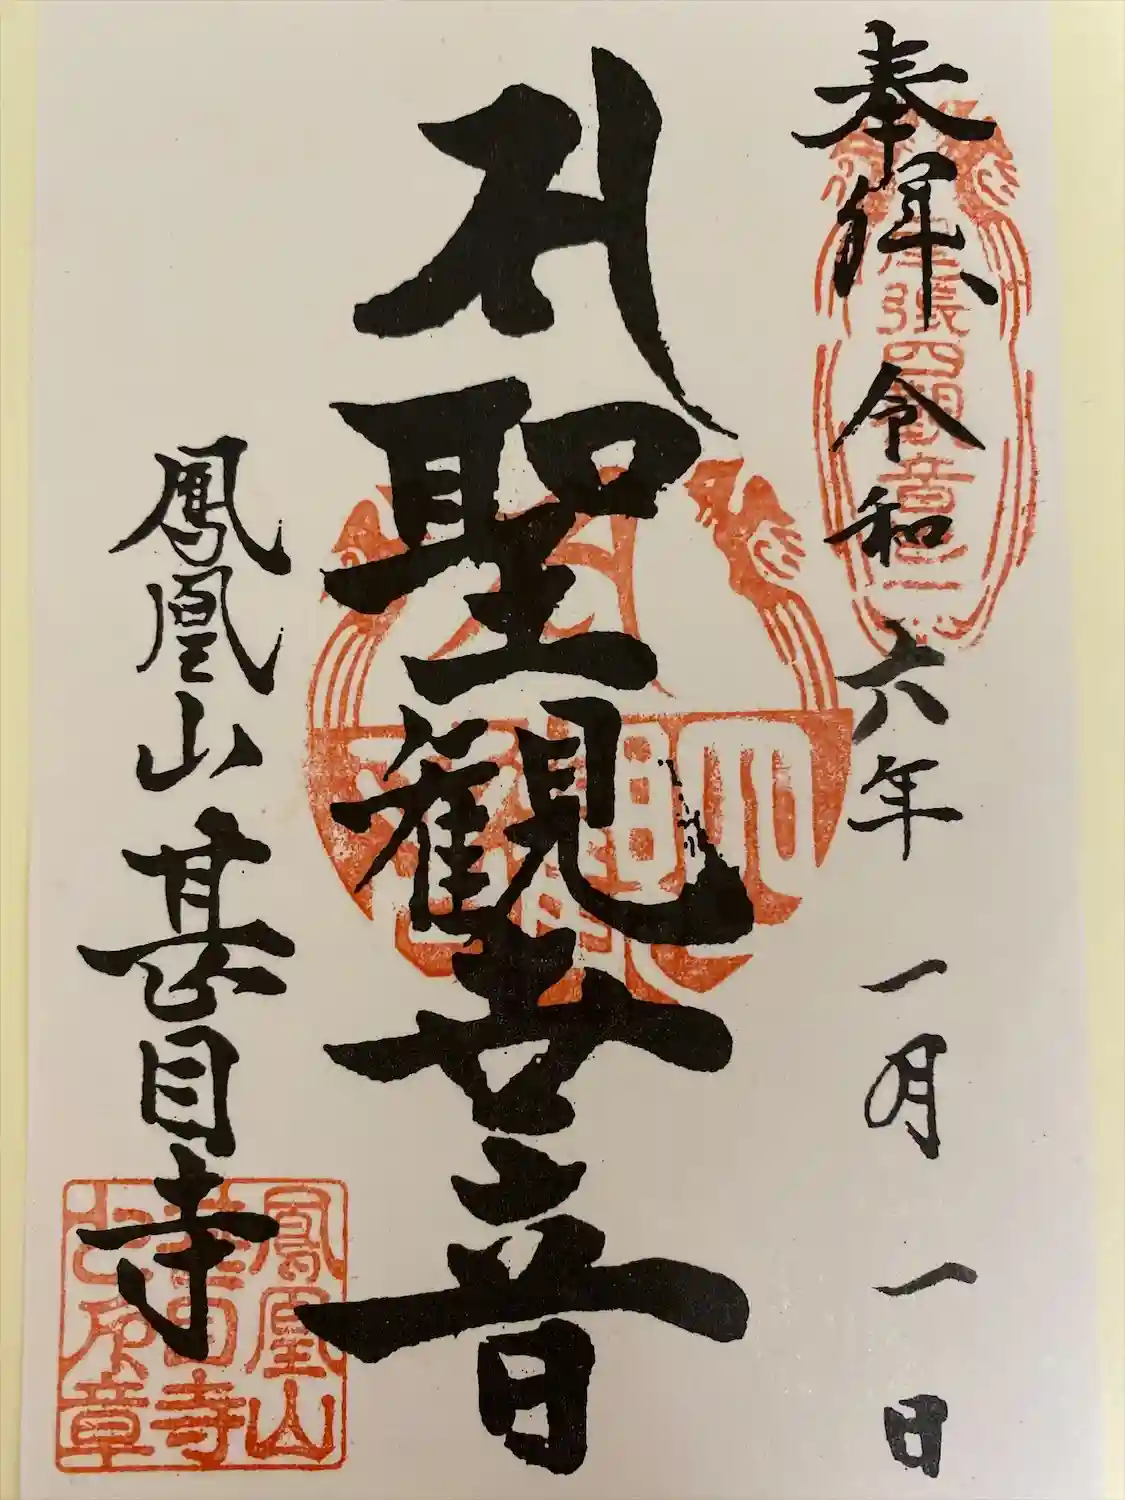 奉拝 令和六年 一月一日
聖観世音
鳳凰山 甚目寺
尾張四観音
鳳凰山
甚目寺